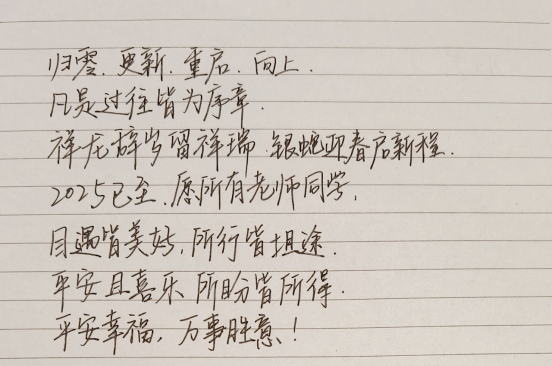 归零.更新.重启.向上.
凡是过往皆为序章.
祥龙辞岁留祥瑞.银蛇迎春启新程.
2025已至.愿所有老师同学,
目遇皆美好,所行皆坦途.
平安且喜乐 所盼皆所得.
平安幸福,万事胜意!